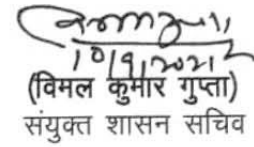 10/9/2021
(विमल कुमार गुप्ता)
संयुक्त शासन सचिव